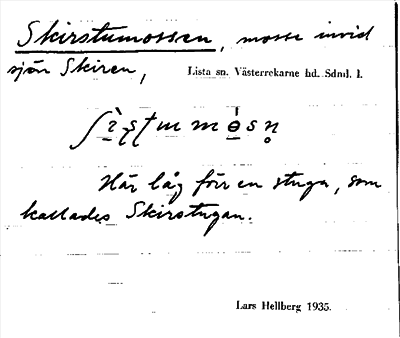 Skirstumossen, mosse invid
sjön Skiren, Lista sn. Västerrekarne hd. Sdml. l.
Här låg förr en stuga, som
kallades Skirstugan.
Lars Hellberg 1935.